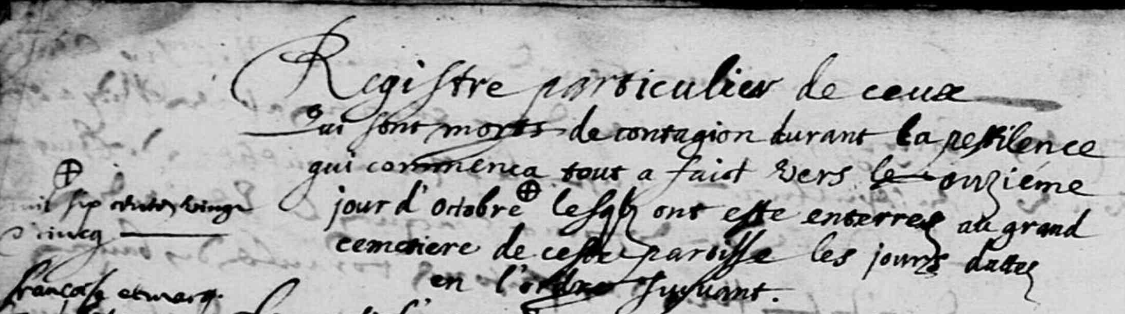 Registre particulier de ceux
Qui sont morts de contagion durant la pestilence
qui commença tout a faict vers le onziéme
jour d'octobre ⊕ lesqlz ont esté enterrez au grand
cemetiere de ceste paroisse les jours dattez
en l'ordre suyvant.
⊕
mil six centz vingt
cincq
françoise et marg.